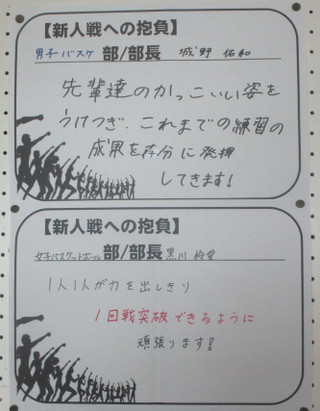 【新人戦への抱負】
男子バスケ 部/部長 城野 佑和
先輩達のかっこいい姿を
うけつぎ、これまでの練習の
成果を存分に発揮
してきます!
【新人戦への抱負】
女子バスケットボール 部/部長 黒川
1人1人が力を出しきり
1回戦突破できるように
頑張ります!